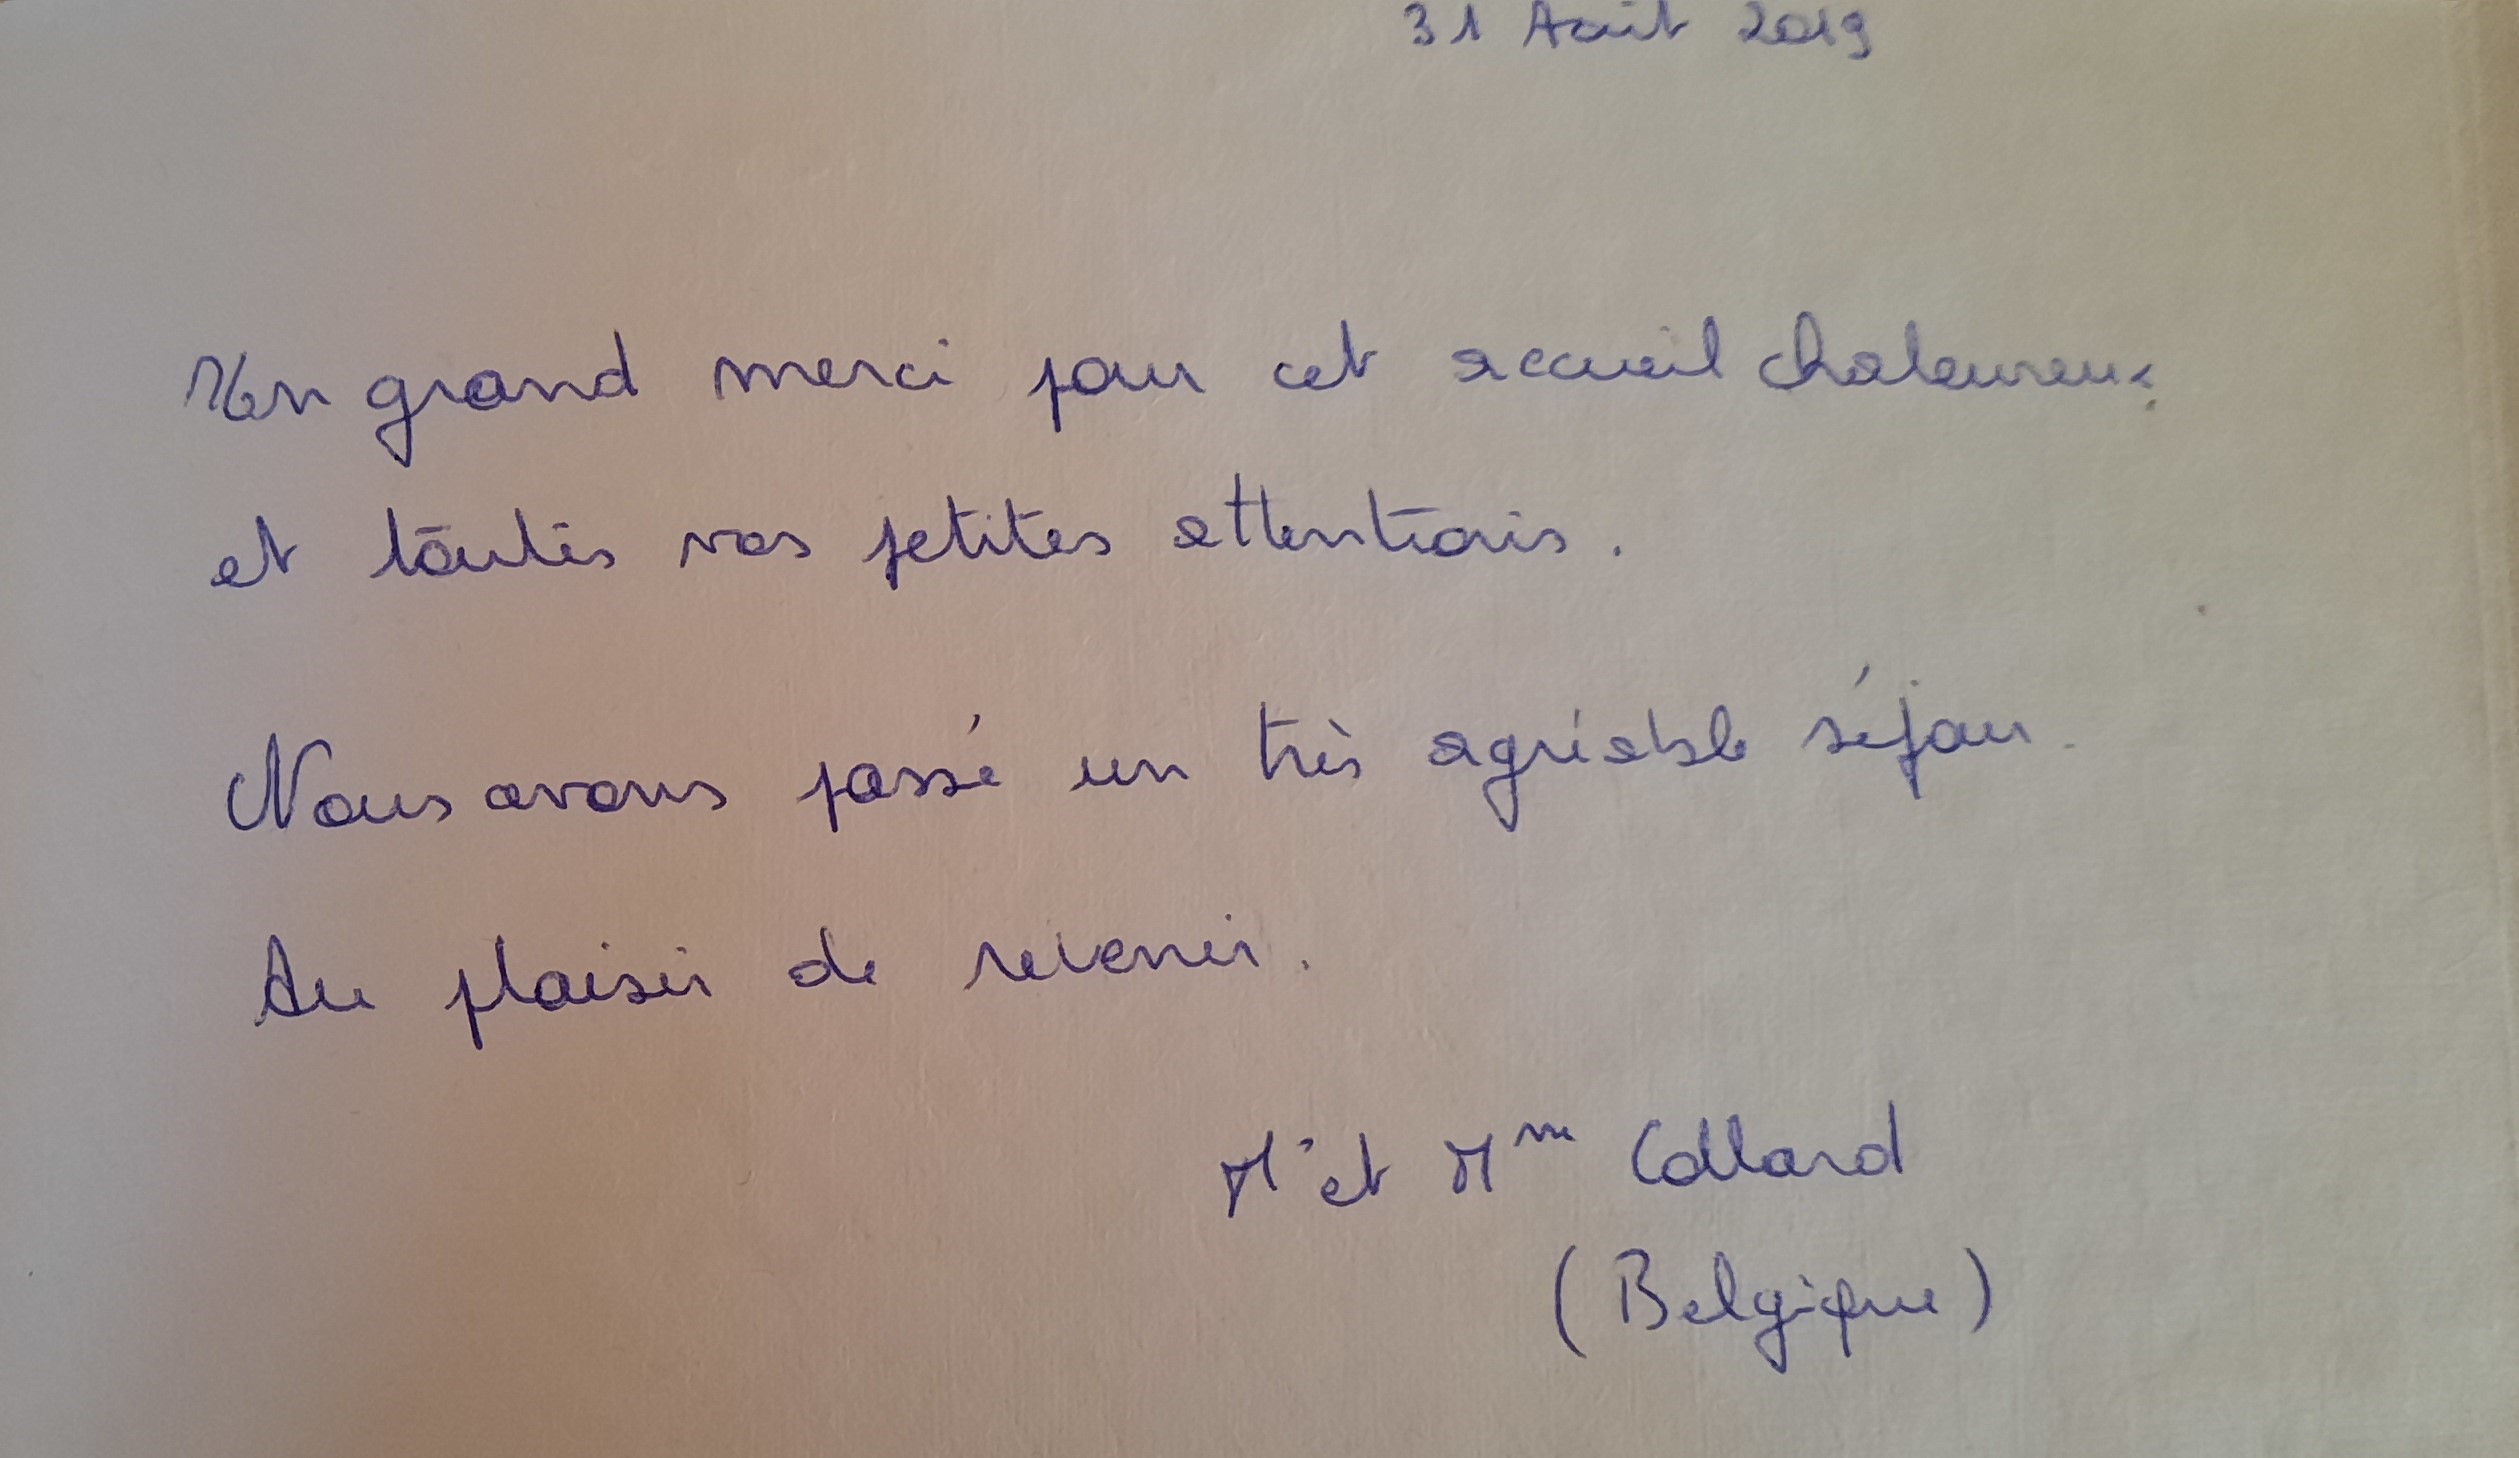 31 Août 2019
Un grand merci pour cet accueil chaleureux
et toutes vos petites attentions.
Nous avons passé un très agréable séjour.
Au plaisir de revenir.
Mr et Mme Collard
(Belgique)